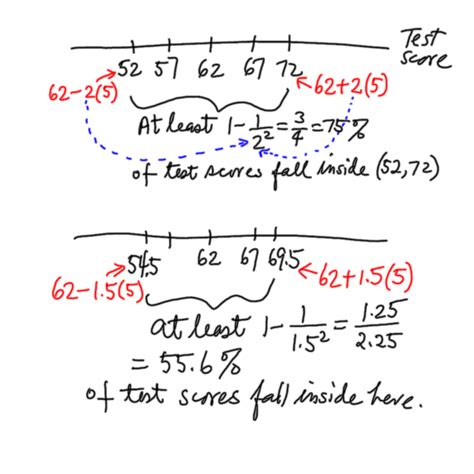 Test
score
52 57 62 67 72
62-2(5) 62+2(5)
At least 1-1/2²=3/4=75%
of test scores fall inside (52,72)
54.5 62 67 69.5
62-1.5(5) 62+1.5(5)
at least 1-1/1.5²=1.25/2.25
=55.6%
of test scores fall inside here.